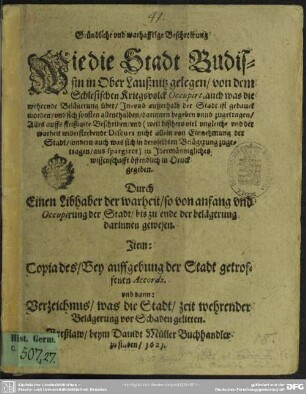 41.
Gründliche vnd warhafftige Beschreibung
Wie die Stadt Budis-
sin in Ober Laußnitz gelegen / von dem
Schlesischen Kriegsvolck Occupirt, auch was die
wehrende Belägerung vber / In vnd ausserhalb der Stadt ist gebawt
worden / vnd sich sonsten allenthalben / darinnen begeben vnnd zugetragen /
Auffs aller fleissigste Beschrieben / weil bißhero viel vngleiche vnd der
warheit widerstrebende Discurs nicht allein von Einnehmung der
Stadt / sondern auch was sich in derselbten Belägerung zuge-
tragen / aus spargiret; zu Jedermännigliches
wissenschafft öffentlich in Druck
gegeben.
Durch
Einen Libhaber der warheit / so von anfang vnd
Occupirung der Stadt / bis zu ende der belägerung
darinnen gewesen.
Item:
Copia des / Bey auffgebung der Stadt getrof-
fenen Accords.
vnd dann:
Verzeichnus / was die Stadt / zeit wehrender
Belägerung vor Schaden gelitten.
Breßlaw / beym David Müller Buchhandler
zu finden / 1621.
Hist. Germ.
C. 507,27.